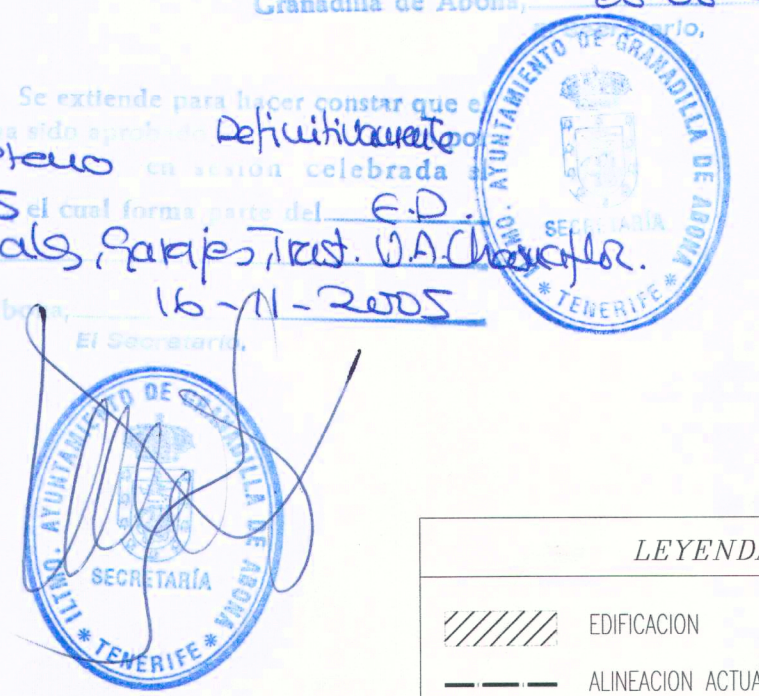 Granadilla de Abona,
Secretario,
Se extiende para hacer constar que el
ha sido aprobado Definitivamente por
Pleno en sesión celebrada el
el cual forma parte del E.D.
Garajes, Trast. U.A. Chasnaflor.
16-11-2005
El Secretario,
ILTMO. AYUNTAMIENTO DE GRANADILLA DE ABONA
SECRETARÍA
* TENERIFE *
ILTMO. AYUNTAMIENTO DE GRANADILLA DE ABONA
SECRETARÍA
* TENERIFE *
LEYENDA
EDIFICACION
ALINEACION ACTUA